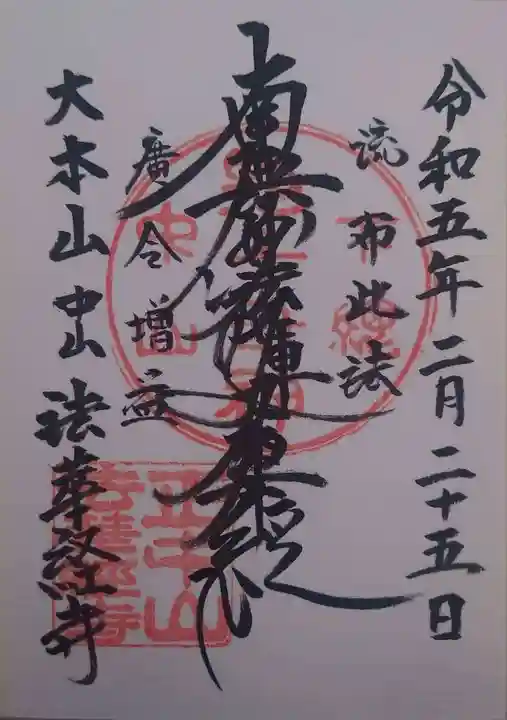 令和五年二月二十五日
流布此法
南無妙法蓮華経
廣令増益
大本山中山法華経寺
正中山